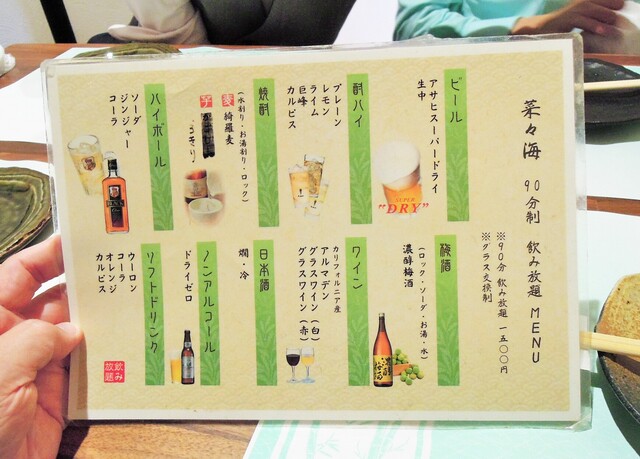 菜々海 90分制 飲み放題 MENU
※90分 飲み放題 一五〇〇円
※グラス交換制
ビール
アサヒスーパードライ
生中
SUPER
"DRY"
酎ハイ
プレーン
レモン
ライム
巨峰
カルピス
焼酎
(水割り・お湯割り・ロック)
麦 綺羅麦
芋
ハイボール
ソーダ
ジンジャー
コーラ
梅酒
(ロック・ソーダ・お湯・水)
濃醇梅酒
ワイン
カリフォルニア産
アルマデン
グラスワイン(白)
グラスワイン(赤)
日本酒
燗・冷
ノンアルコール
ドライゼロ
ソフトドリンク
ウーロン
コーラ
オレンジ
カルピス
飲み放題